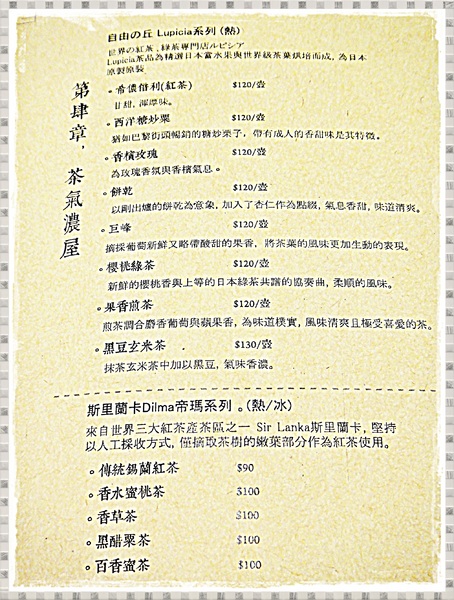 第肆章，茶氣濃屋
自由の丘 Lupicia系列 (熱)
世界の紅茶、綠茶專門店ルピシア
Lupicia茶品為精選日本當水果與世界級茶葉烘培而成，為日本
原製原裝
。希儂佾利(紅茶) $120/壺
甘甜，渾厚味。
。西洋糖炒栗 $120/壺
猶如巴黎街頭暢銷的糖炒栗子，帶有成人的香甜味是其特徵。
。香檳玫瑰 $120/壺
為玫瑰香氛與香檳氣息。
。餅乾 $120/壺
以剛出爐的餅乾為意象，加入了杏仁作為點綴，氣息香甜，味道清爽。
。巨峰 $120/壺
摘採葡萄新鮮又略帶酸甜的果香，將茶葉的風味更加生動的表現。
。櫻桃綠茶 $120/壺
新鮮的櫻桃香與上等的日本綠茶共譜的協奏曲，柔順的風味。
。果香煎茶 $120/壺
煎茶調合麝香葡萄與蘋果香，為味道樸實，風味清爽且極受喜愛的茶。
。黑豆玄米茶 $130/壺
抹茶玄米茶中加以黑豆，氣味香濃。
斯里蘭卡Dilma帝瑪系列 。(熱/冰)
來自世界三大紅茶產茶區之一 Sir Lanka斯里蘭卡，堅持
以人工採收方式，僅摘取茶樹的嫩葉部分作為紅茶使用。
。傳統錫蘭紅茶 $90
。香水蜜桃茶 $100
。香草茶 $100
。黑醋栗茶 $100
。百香蜜茶 $100